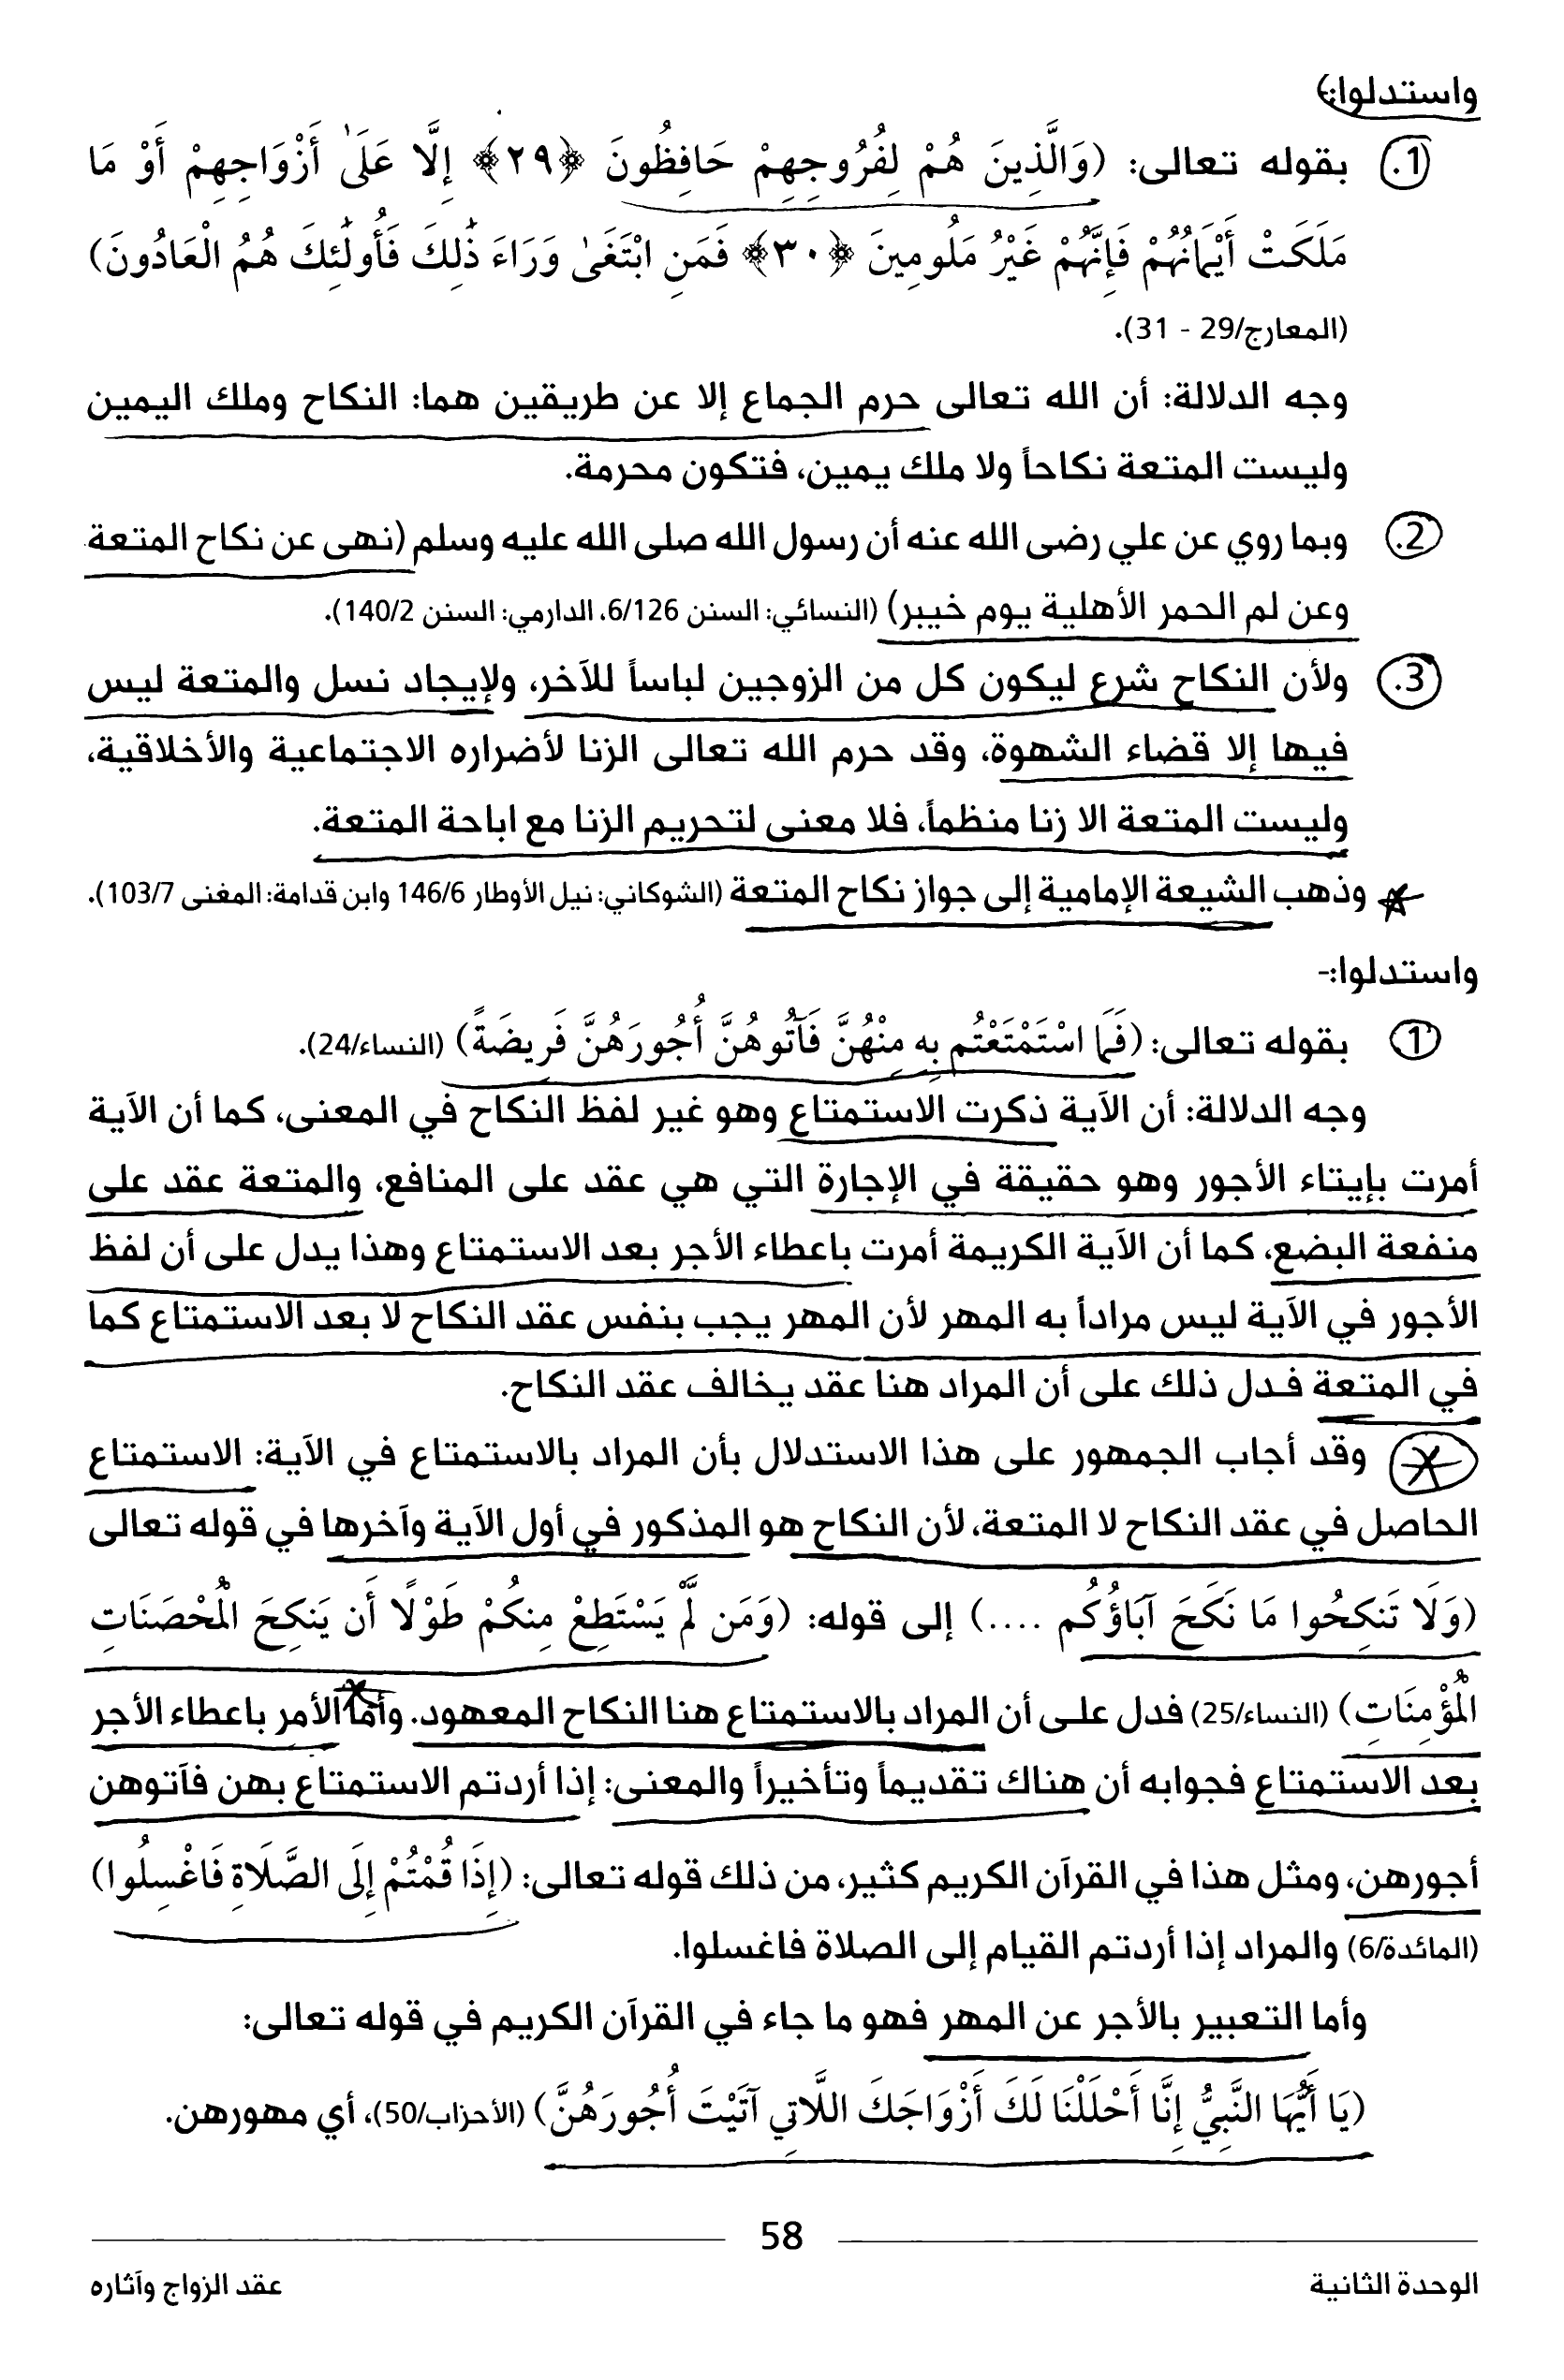 واستدلوا:-
1. بقوله تعالى: (وَالَّذِينَ هُمْ لِفُرُوجِهِمْ حَافِظُونَ ﴿٢٩﴾ إِلَّا عَلَىٰ أَزْوَاجِهِمْ أَوْ مَا
مَلَكَتْ أَيْمَانُهُمْ فَإِنَّهُمْ غَيْرُ مَلُومِينَ ﴿٣٠﴾ فَمَنِ ابْتَغَىٰ وَرَاءَ ذَٰلِكَ فَأُولَٰئِكَ هُمُ الْعَادُونَ)
(المعارج/29 - 31).
وجه الدلالة: أن الله تعالى حرم الجماع إلا عن طريقين هما: النكاح وملك اليمين
وليست المتعة نكاحاً ولا ملك يمين، فتكون محرمة.
2. وبما روي عن علي رضى الله عنه أن رسول الله صلى الله عليه وسلم (نهى عن نكاح المتعة
وعن لم الحمر الأهلية يوم خيبر) (النسائي: السنن 6/126، الدارمي: السنن 140/2).
3. ولأن النكاح شرع ليكون كل من الزوجين لباساً للآخر، ولإيجاد نسل والمتعة ليس
فيها إلا قضاء الشهوة، وقد حرم الله تعالى الزنا لأضراره الاجتماعية والأخلاقية،
وليست المتعة الا زنا منظماً، فلا معنى لتحريم الزنا مع اباحة المتعة.
وذهب الشيعة الإمامية إلى جواز نكاح المتعة (الشوكاني: نيل الأوطار 146/6 وابن قدامة: المغنى 103/7).
واستدلوا:-
1 بقوله تعالى: (فَمَا اسْتَمْتَعْتُم بِهِ مِنْهُنَّ فَآتُوهُنَّ أُجُورَهُنَّ فَرِيضَةً) (النساء/24).
وجه الدلالة: أن الآية ذكرت الاستمتاع وهو غير لفظ النكاح في المعنى، كما أن الآية
أمرت بإيتاء الأجور وهو حقيقة في الإجارة التي هي عقد على المنافع، والمتعة عقد على
منفعة البضع، كما أن الآية الكريمة أمرت باعطاء الأجر بعد الاستمتاع وهذا يدل على أن لفظ
الأجور في الآية ليس مراداً به المهر لأن المهر يجب بنفس عقد النكاح لا بعد الاستمتاع كما
في المتعة فدل ذلك على أن المراد هنا عقد يخالف عقد النكاح.
وقد أجاب الجمهور على هذا الاستدلال بأن المراد بالاستمتاع في الآية: الاستمتاع
الحاصل في عقد النكاح لا المتعة، لأن النكاح هو المذكور في أول الآية وآخرها في قوله تعالى
(وَلَا تَنكِحُوا مَا نَكَحَ آبَاؤُكُم ....) إلى قوله: (وَمَن لَّمْ يَسْتَطِعْ مِنكُمْ طَوْلًا أَن يَنكِحَ الْمُحْصَنَاتِ
الْمُؤْمِنَاتِ) (النساء/25) فدل على أن المراد بالاستمتاع هنا النكاح المعهود. وأما الأمر باعطاء الأجر
بعد الاستمتاع فجوابه أن هناك تقديماً وتأخيراً والمعنى: إذا أردتم الاستمتاع بهن فآتوهن
أجورهن، ومثل هذا في القرآن الكريم كثير، من ذلك قوله تعالى: (إِذَا قُمْتُمْ إِلَى الصَّلَاةِ فَاغْسِلُوا)
(المائدة/6) والمراد إذا أردتم القيام إلى الصلاة فاغسلوا.
وأما التعبير بالأجر عن المهر فهو ما جاء في القرآن الكريم في قوله تعالى:
(يَا أَيُّهَا النَّبِيُّ إِنَّا أَحْلَلْنَا لَكَ أَزْوَاجَكَ اللَّاتِي آتَيْتَ أُجُورَهُنَّ) (الأحزاب/50)، أي مهورهن.
58
الوحدة الثانية
عقد الزواج وآثاره